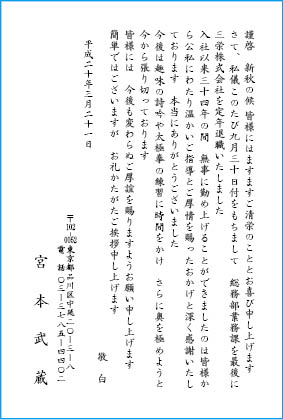 謹啓　新秋の候　皆様にはますますご清栄のこととお喜び申し上げます
さて、私儀このたび九月三十日付をもちまして　総務部業務課を最後に
三栄株式会社を定年退職いたしました
入社以来三十四年の間　無事に勤め上げることができましたのは皆様か
ら公私にわたり温かいご指導とご厚情を賜ったおかげと深く感謝いたし
ております　本当にありがとうございました
今後は趣味の詩吟や太極拳の練習に時間をかけ　さらに奥を極めようと
今から張り切っております
皆様には　今後も変わらぬご厚誼を賜りますようお願い申し上げます
簡単ではございますが　お礼かたがたご挨拶申し上げます
敬白
平成二十年三月二十一日
〒102-0052
東京都品川区中延一〇-三-八
電話〇三-三七八五-四四〇二
宮本武蔵